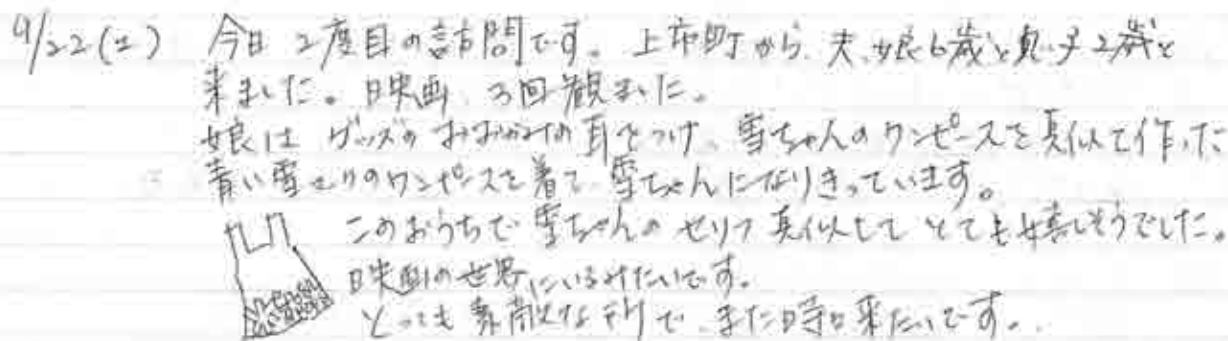 9/22(土) 今日 2度目の訪問です。上市町から、夫、娘6歳と息子2歳と
来ました。映画、3回観ました。
娘は グッズの おおかみの 耳をつけ、雪ちゃんのワンピースを真似て作った
青い雪もりのワンピースを着て、雪ちゃんになりきっています。
このおうちで 雪ちゃんの セリフ 真似して とても嬉しそうでした。
映画の世界にいるみたいです。
とっても 素敵な所で、また時々来たいです。